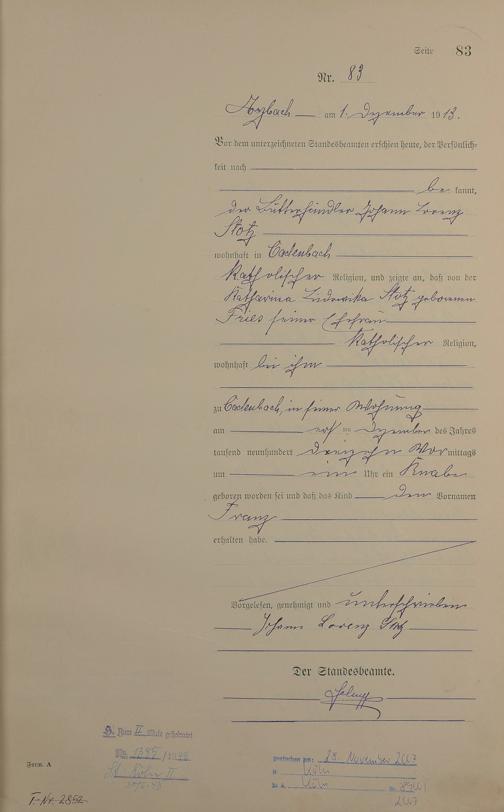 Seite 83
Nr. 83
Arzbach am 1. Dezember 1913.
Vor dem unterzeichneten Standesbeamten erschien heute, der Persönlich-
keit nach
be kannt,
der Butterhändler Johann Lorenz
Stotz
wohnhaft in Cadenbach
katholischer Religion, und zeigte an, daß von der
Katharina Ludowika Stotz geborenen
Fries seiner Ehefrau
katholischer Religion,
wohnhaft bei ihm
zu Cadenbach, in seiner Wohnung
am ersten Dezember des Jahres
tausend neunhundert dreizehn Vor mittags
um ein Uhr ein Knabe
geboren worden sei und daß das Kind den Vornamen
Franz
erhalten habe.
Vorgelesen, genehmigt und unterschrieben
Johann Lorenz Stotz
Der Standesbeamte.
II
1943
St. Köln II
gestorben am: 28. November 2007
in Köln
Köln
2007
Form. A